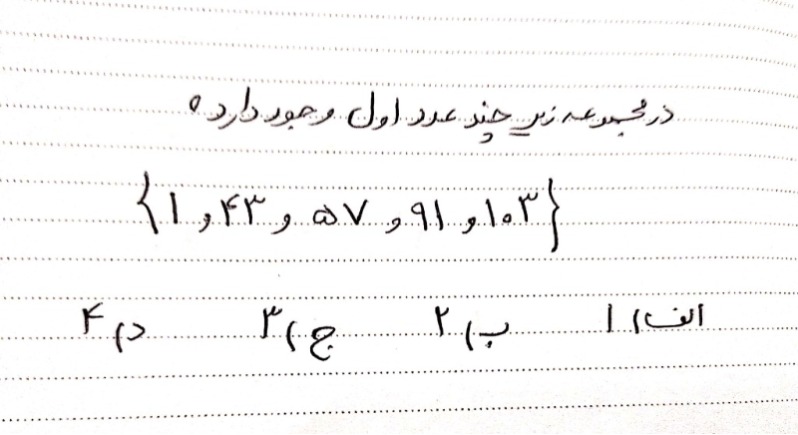 در مجموعه زیر چند عدد اول وجود دارد؟
{۱ و ۴۳ و ۵۷ و ۹۱ و ۱۰۳}
الف) ۱ ب) ۲ ج) ۳ د) ۴